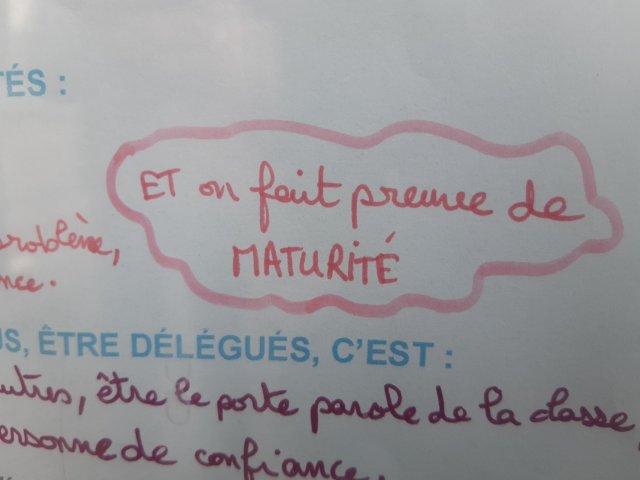 TÉS :
ET on fait preuve de
MATURITÉ
problème,
nce.
US, ÊTRE DÉLÉGUÉS, C'EST :
utres, être le porte parole de la classe,
ersonne de confiance.